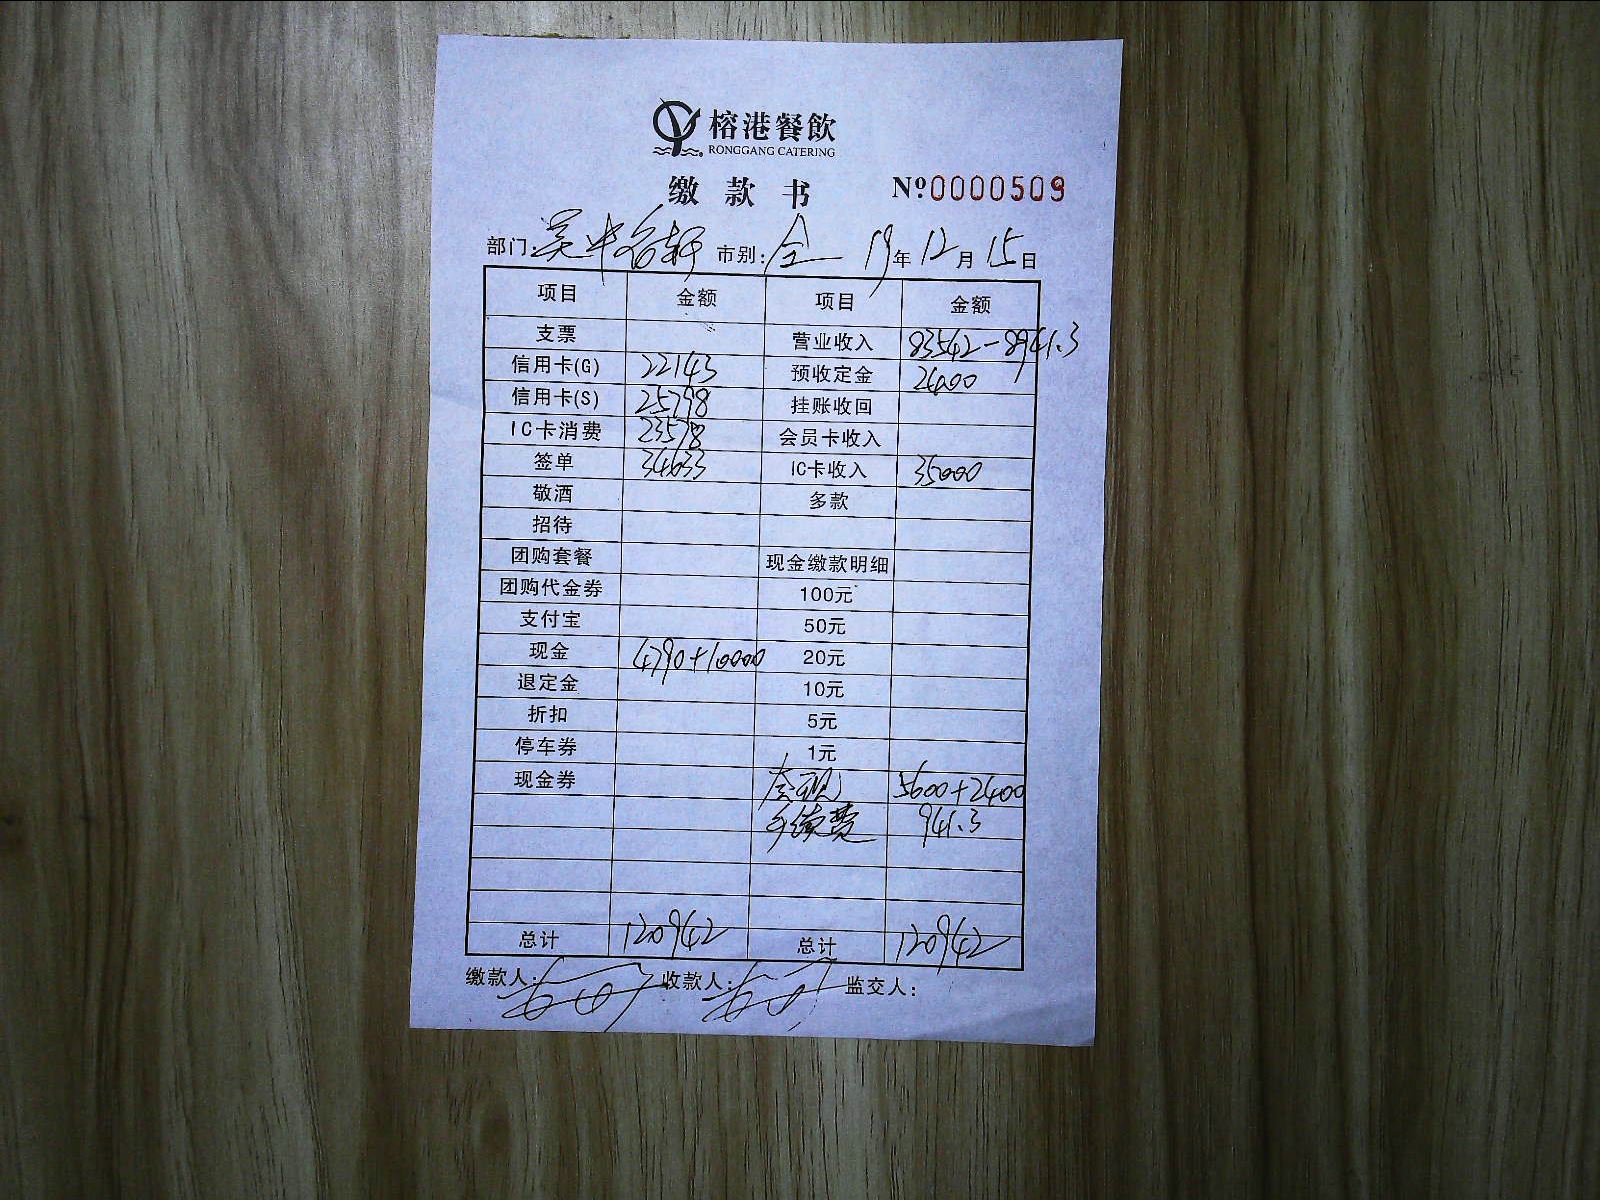 榕港餐飲
RONGGANG CATERING
缴款书 Nº0000509
部门: 吴中 市别: 全 19年12月15日
项目 金额 项目 金额
支票 营业收入 83542-8941.3
信用卡(G) 22143 预收定金 2400
信用卡(S) 25798 挂账收回
IC卡消费 23578 会员卡收入
签单 34633 IC卡收入 35000
敬酒 多款
招待
团购套餐 现金缴款明细
团购代金券 100元
支付宝 50元
现金 4790+10000 20元
退定金 10元
折扣 5元
停车券 1元
现金券 套现 5600+2400
手续费 941.3
总计 120942 总计 120942
缴款人: 收款人: 监交人: